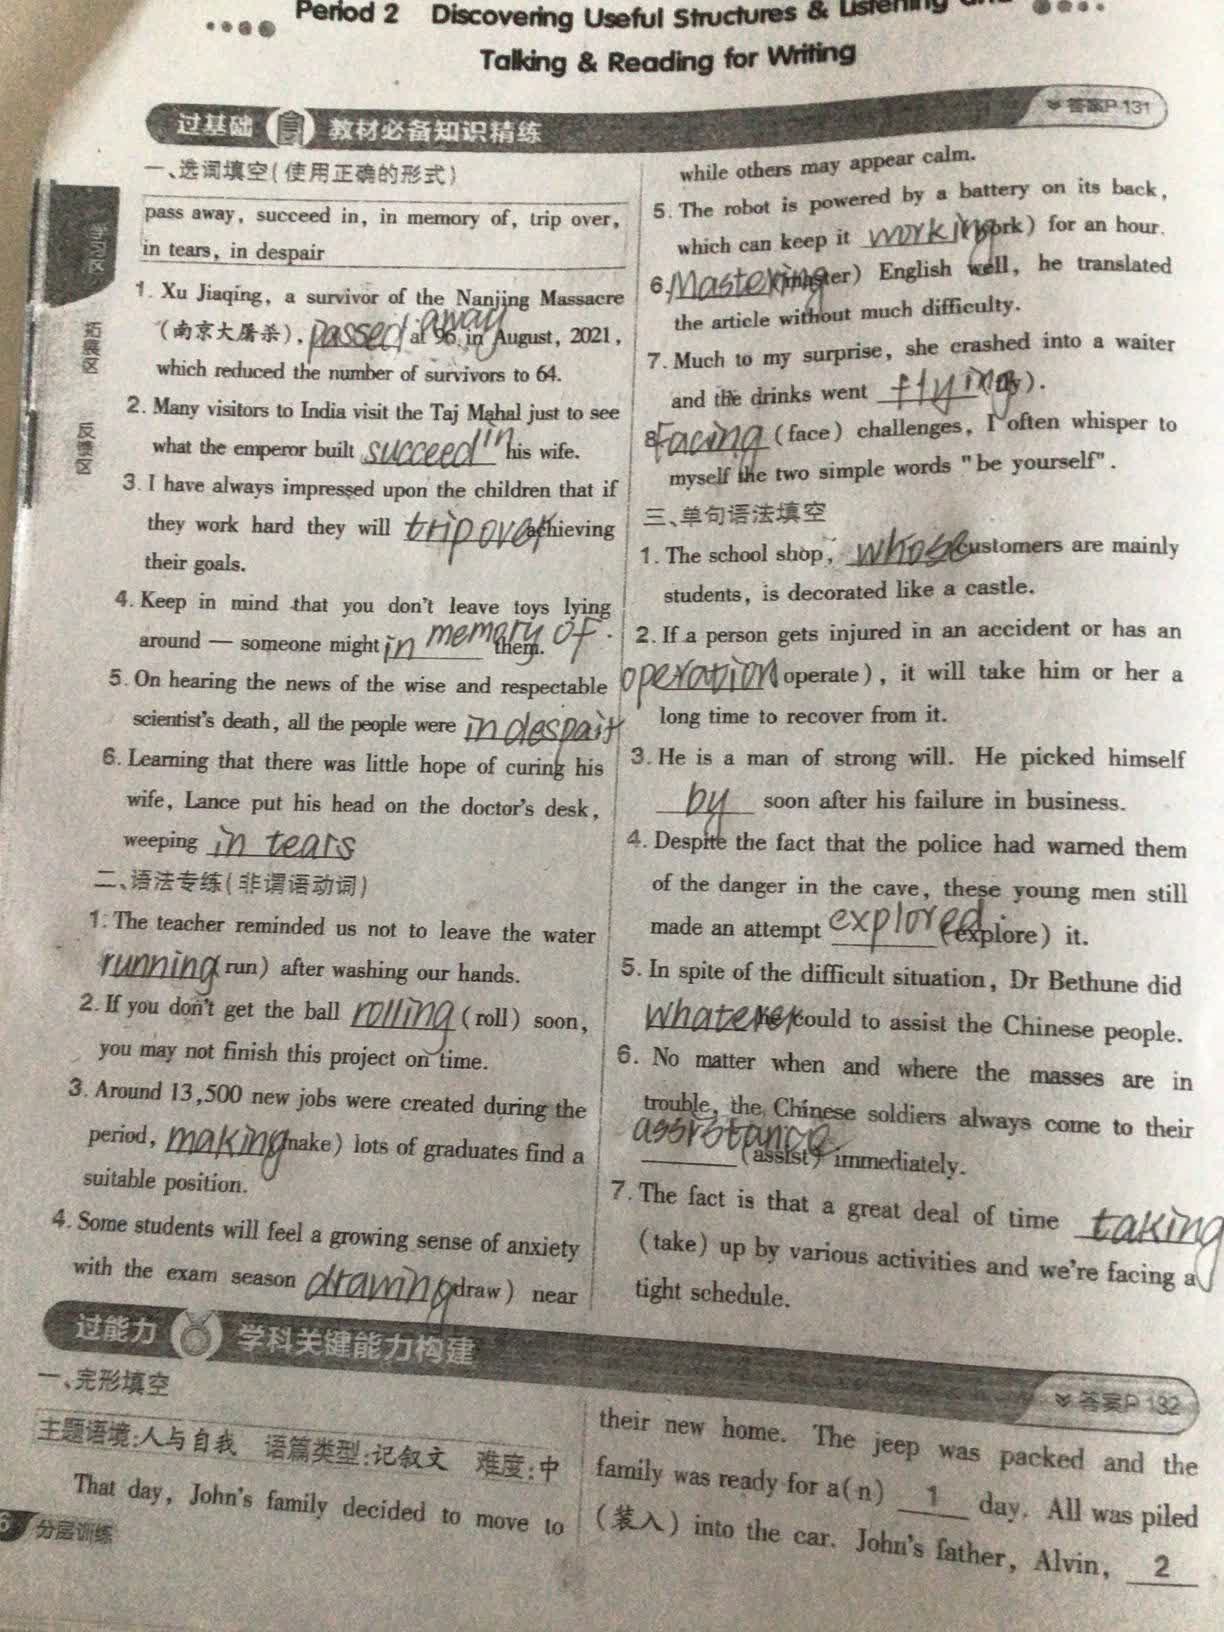 Period 2 Discovering Useful Structures & Listening and
Talking & Reading for Writing
过基础 教材必备知识精练
答案P 131
学习区
拓展区
反馈区
一、选词填空(使用正确的形式)
pass away, succeed in, in memory of, trip over,
in tears, in despair
1. Xu Jiaqing, a survivor of the Nanjing Massacre
(南京大屠杀), passed away at 96 in August, 2021,
which reduced the number of survivors to 64.
2. Many visitors to India visit the Taj Mahal just to see
what the emperor built succeed in his wife.
3. I have always impressed upon the children that if
they work hard they will trip over achieving
their goals.
4. Keep in mind that you don't leave toys lying
around — someone might in memory of them.
5. On hearing the news of the wise and respectable
scientist's death, all the people were in despair
6. Learning that there was little hope of curing his
wife, Lance put his head on the doctor's desk,
weeping in tears
二、语法专练(非谓语动词)
1. The teacher reminded us not to leave the water
running (run) after washing our hands.
2. If you don't get the ball rolling (roll) soon,
you may not finish this project on time.
3. Around 13,500 new jobs were created during the
period, making (make) lots of graduates find a
suitable position.
4. Some students will feel a growing sense of anxiety
with the exam season drawing (draw) near
while others may appear calm.
5. The robot is powered by a battery on its back,
which can keep it working (work) for an hour.
6. Mastering (master) English well, he translated
the article without much difficulty.
7. Much to my surprise, she crashed into a waiter
and the drinks went flying (fly).
8. Facing (face) challenges, I often whisper to
myself the two simple words "be yourself".
三、单句语法填空
1. The school shop, whose customers are mainly
students, is decorated like a castle.
2. If a person gets injured in an accident or has an
operation (operate), it will take him or her a
long time to recover from it.
3. He is a man of strong will. He picked himself
by soon after his failure in business.
4. Despite the fact that the police had warned them
of the danger in the cave, these young men still
made an attempt explored (explore) it.
5. In spite of the difficult situation, Dr Bethune did
whatever he could to assist the Chinese people.
6. No matter when and where the masses are in
trouble, the Chinese soldiers always come to their
assistance (assist) immediately.
7. The fact is that a great deal of time taking
(take) up by various activities and we're facing a
tight schedule.
过能力 学科关键能力构建
答案P 132
一、完形填空
主题语境:人与自我 语篇类型:记叙文 难度:中
That day, John's family decided to move to
their new home. The jeep was packed and the
family was ready for a(n) 1 day. All was piled
(装入) into the car. John's father, Alvin, 2
6 分层训练